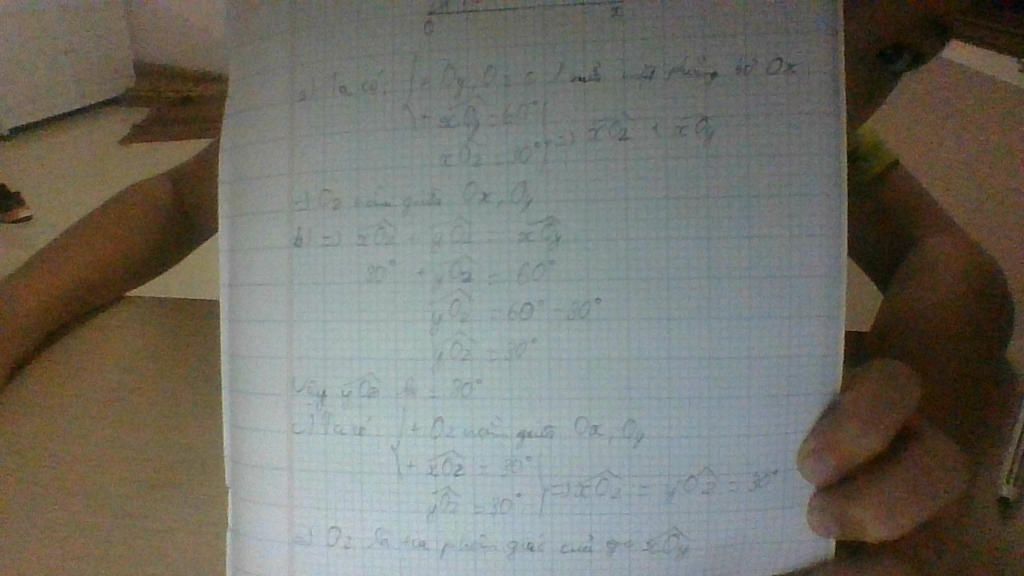 O x
a) Ta có: + Oy, Oz c 1 nửa mặt phẳng bờ Ox
+ xOy = 60°
xOz = 30° => xOz < xOy
=> Oz nằm giữa Ox, Oy
b) => xOz + yOz = xOy
30° + yOz = 60°
yOz = 60° - 30°
yOz = 30°
Vậy yOz = 30°
c) Ta có: + Oz nằm giữa Ox, Oy
+ xOz = 30°
yOz = 30° => xOz = yOz = 30°
=> Oz là tia phân giác của xOy